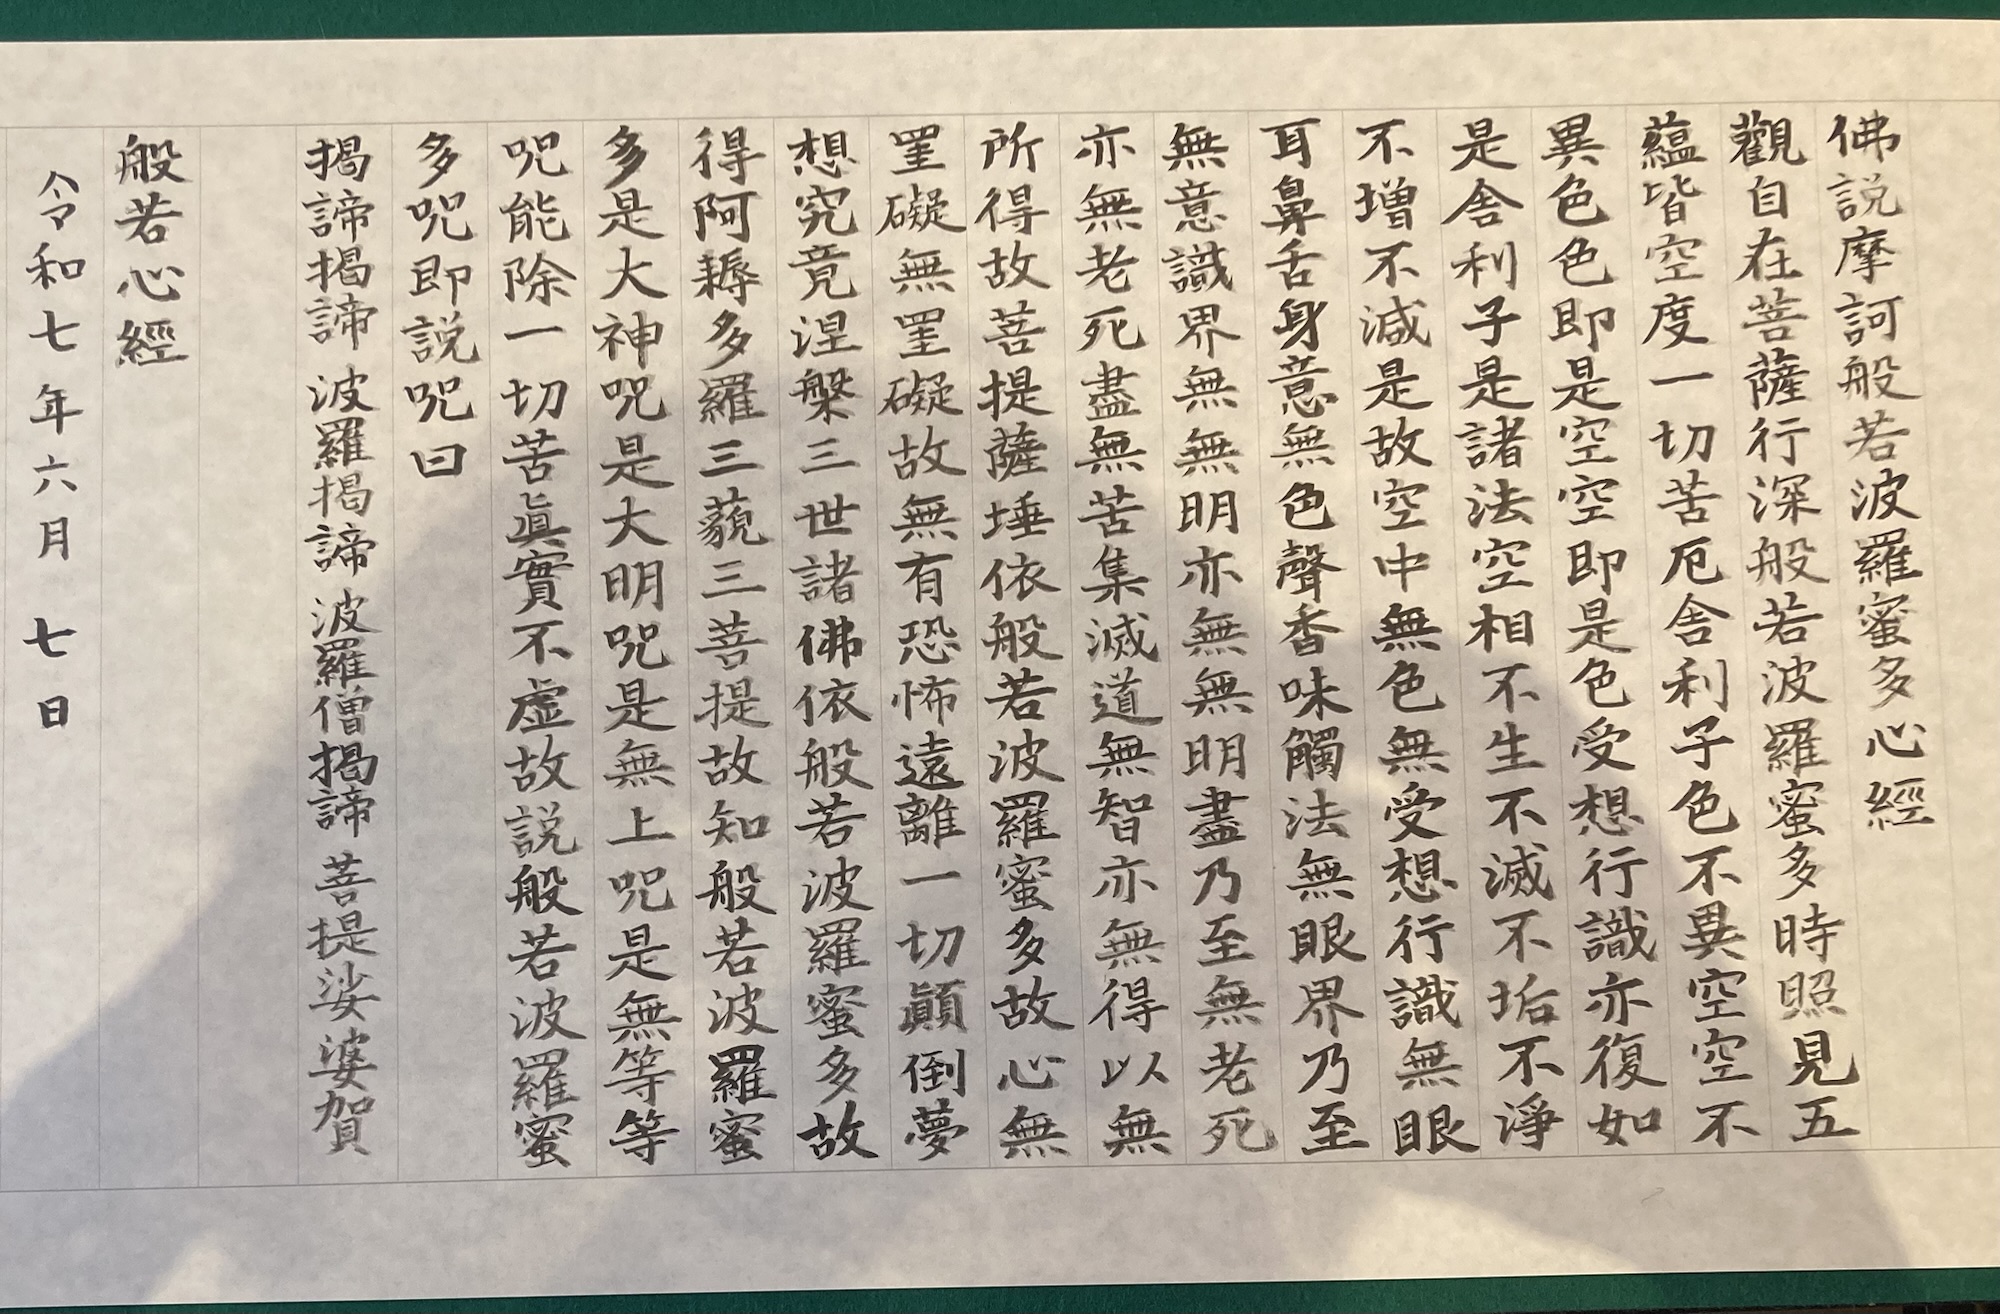 佛説摩訶般若波羅蜜多心經
觀自在菩薩行深般若波羅蜜多時照見五
蘊皆空度一切苦厄舎利子色不異空空不
異色色即是空空即是色受想行識亦復如
是舎利子是諸法空相不生不滅不垢不淨
不増不減是故空中無色無受想行識無眼
耳鼻舌身意無色聲香味觸法無眼界乃至
無意識界無無明亦無無明盡乃至無老死
亦無老死盡無苦集滅道無智亦無得以無
所得故菩提薩埵依般若波羅蜜多故心無
罣礙無罣礙故無有恐怖遠離一切顛倒夢
想究竟涅槃三世諸佛依般若波羅蜜多故
得阿耨多羅三藐三菩提故知般若波羅蜜
多是大神呪是大明呪是無上呪是無等等
呪能除一切苦眞實不虚故説般若波羅蜜
多呪即説呪曰
揭諦揭諦 波羅揭諦 波羅僧揭諦 菩提娑婆賀
般若心經
令和七年六月 七日